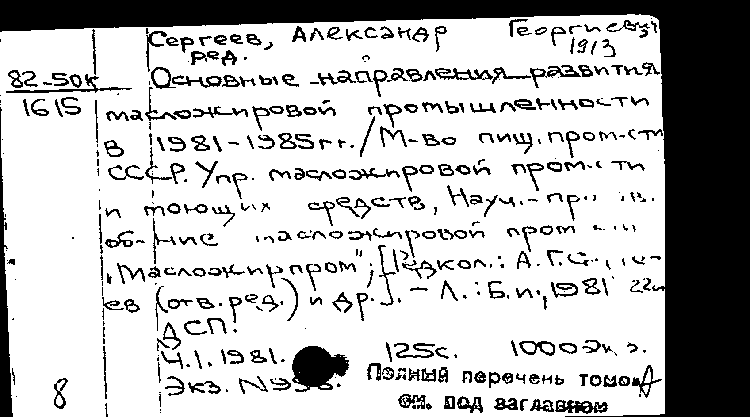 Сергеев, Александр Георгиевич
ред. 1913
82-50к Основные направления развития
1615 масложировой промышленности
в 1981-1985гг. / М-во пищ. пром-сти
СССР. Упр. масложировой пром-сти
и моющих средств, Науч.-пр.
об-ние масложировой пром
"Масложирпром"; [Редкол.: А.Г.
ев (отв. ред.) и др.]. - Л.: Б.и., 1981 22см
ДСП.
Ч.1. 1981. 125с. 1000экз.
Экз. N
Полный перечень томов
8 см. под заглавном